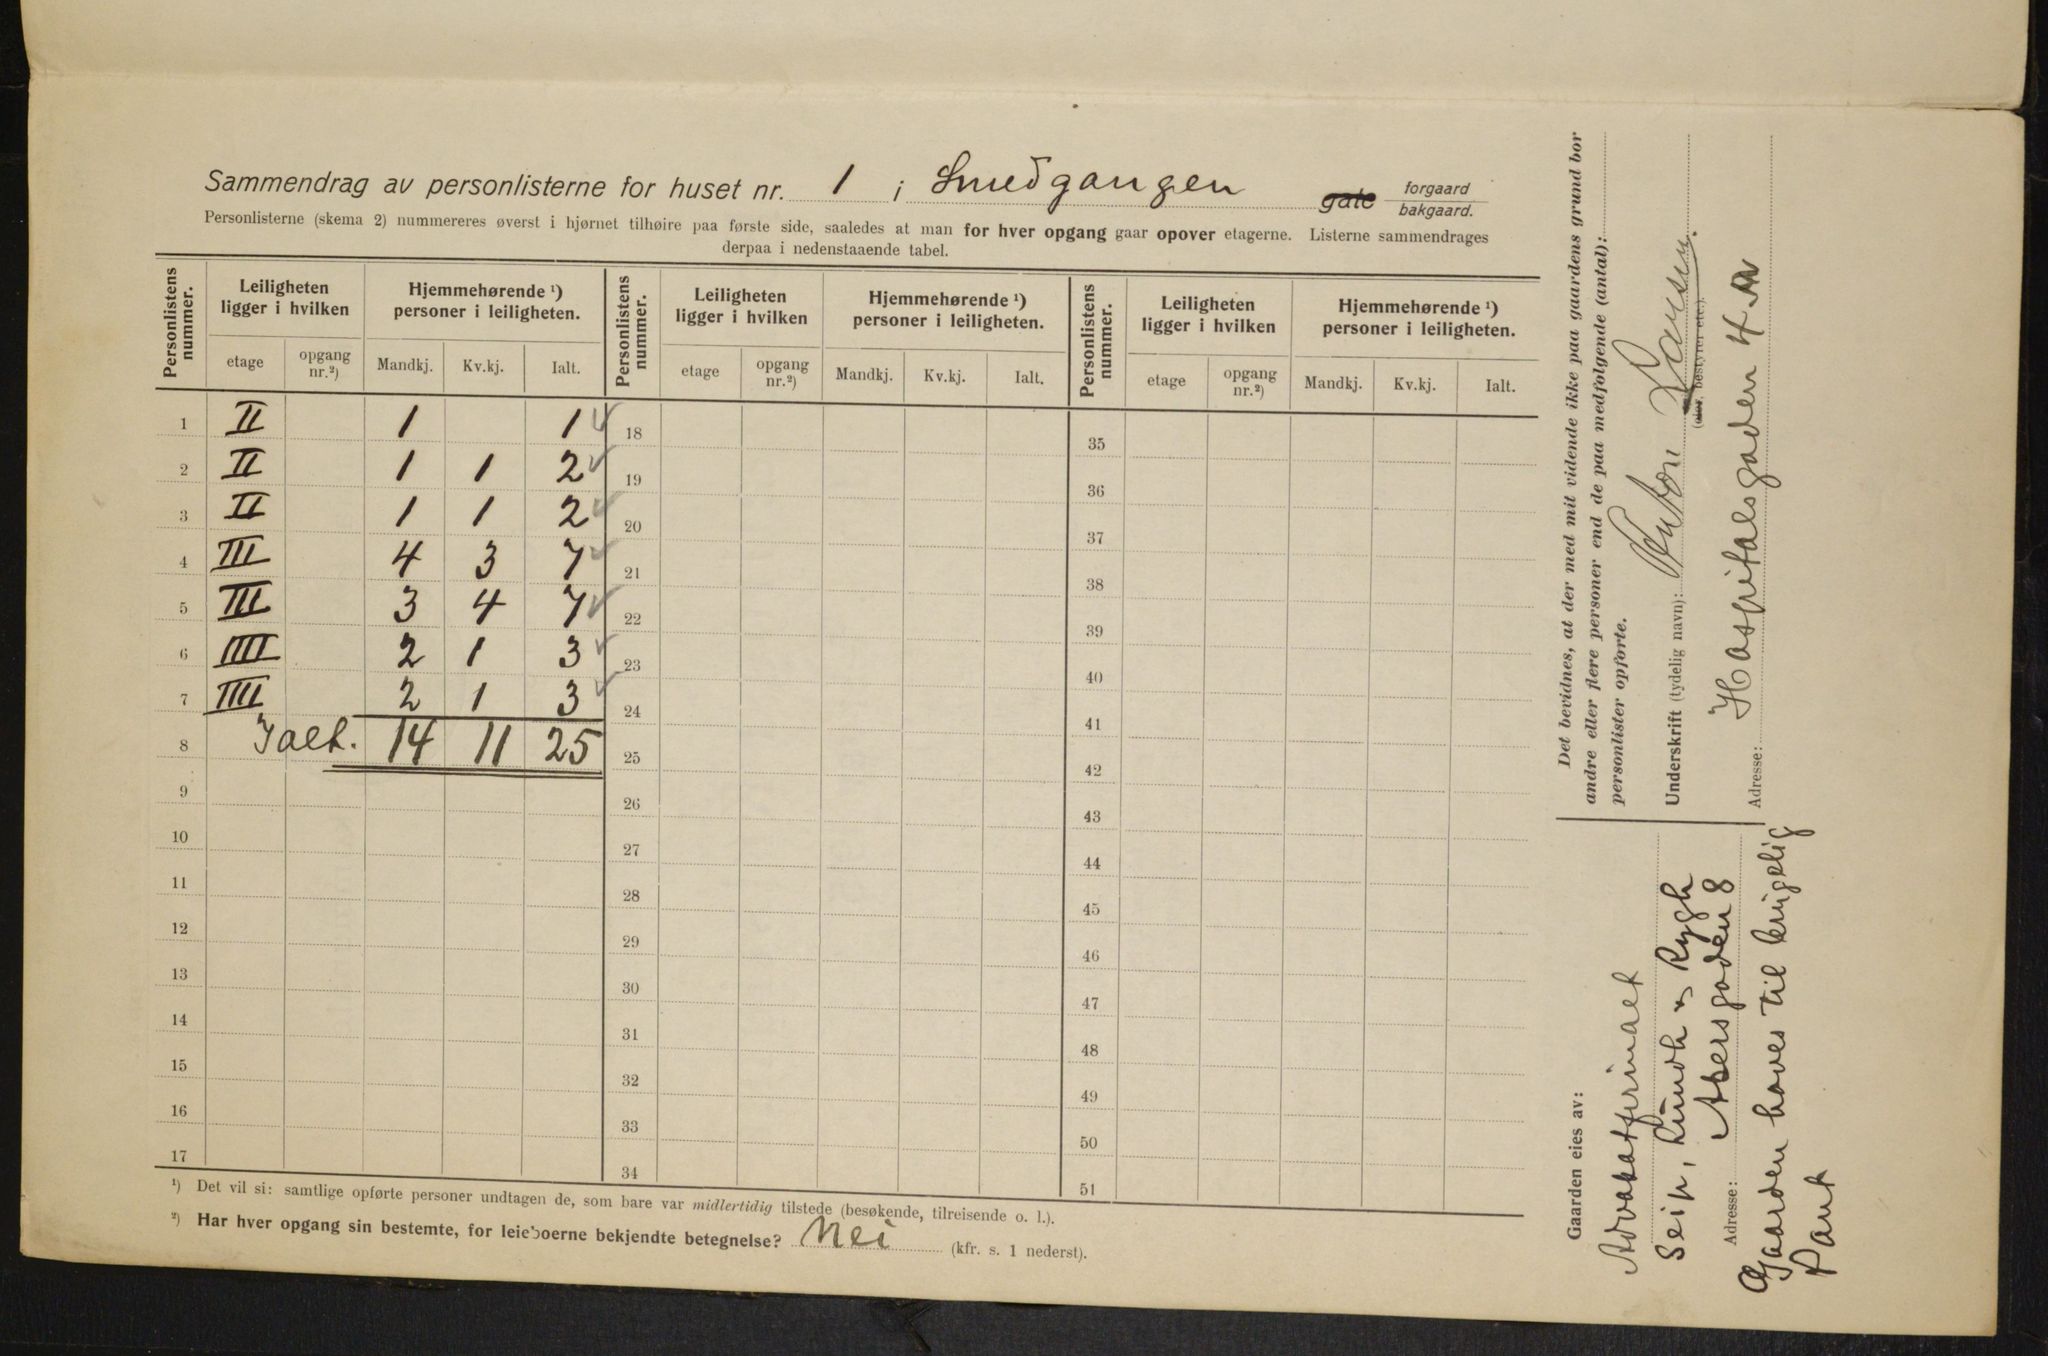 Sammendrag av personlisterne for huset nr. 1 i Smedgangen gate forgaard bakgaard.
Personlisterne (skema 2) nummereres øverst i hjørnet tilhøire paa første side, saaledes at man for hver opgang gaar opover etagerne. Listerne sammendrages
derpaa i nedenstaaende tabel.
Personlistens nummer. Leiligheten ligger i hvilken Hjemmehørende ¹) personer i leiligheten. Personlistens nummer. Leiligheten ligger i hvilken Hjemmehørende ¹) personer i leiligheten. Personlistens nummer. Leiligheten ligger i hvilken Hjemmehørende ¹) personer i leiligheten.
etage opgang nr.²) Mandkj. Kv.kj. Ialt. etage opgang nr.²) Mandkj. Kv.kj. Ialt. etage opgang nr.²) Mandkj. Kv.kj. Ialt.
1 II 1 1 18 35
2 II 1 1 2 19 36
3 II 1 1 2 20 37
4 III 4 3 7 21 38
5 III 3 4 7 22 39
6 IIII 2 1 3 23 40
7 IIII 2 1 3 24 41
8 Ialt. 14 11 25 25 42
9 26 43
10 27 44
11 28 45
12 29 46
13 30 47
14 31 48
15 32 49
16 33 50
17 34 51
¹) Det vil si: samtlige opførte personer undtagen de, som bare var midlertidig tilstede (besøkende, tilreisende o. l.).
²) Har hver opgang sin bestemte, for leieboerne bekjendte betegnelse? Nei (kfr. s. 1 nederst).
Det bevidnes, at der med mit vidende ikke paa gaardens grund bor
andre eller flere personer end de paa medfølgende (antal):
personlister opførte.
Underskrift (tydelig navn): Anton Larsen.
(eier, bestyrer etc.).
Adresse: Hospitalsgaden 4
Gaarden eies av:
Advokatfirmaet
Seip, Lundh & Rygh
Adresse: Akersgaden 8
Gaarden haves til brugelig
Pant